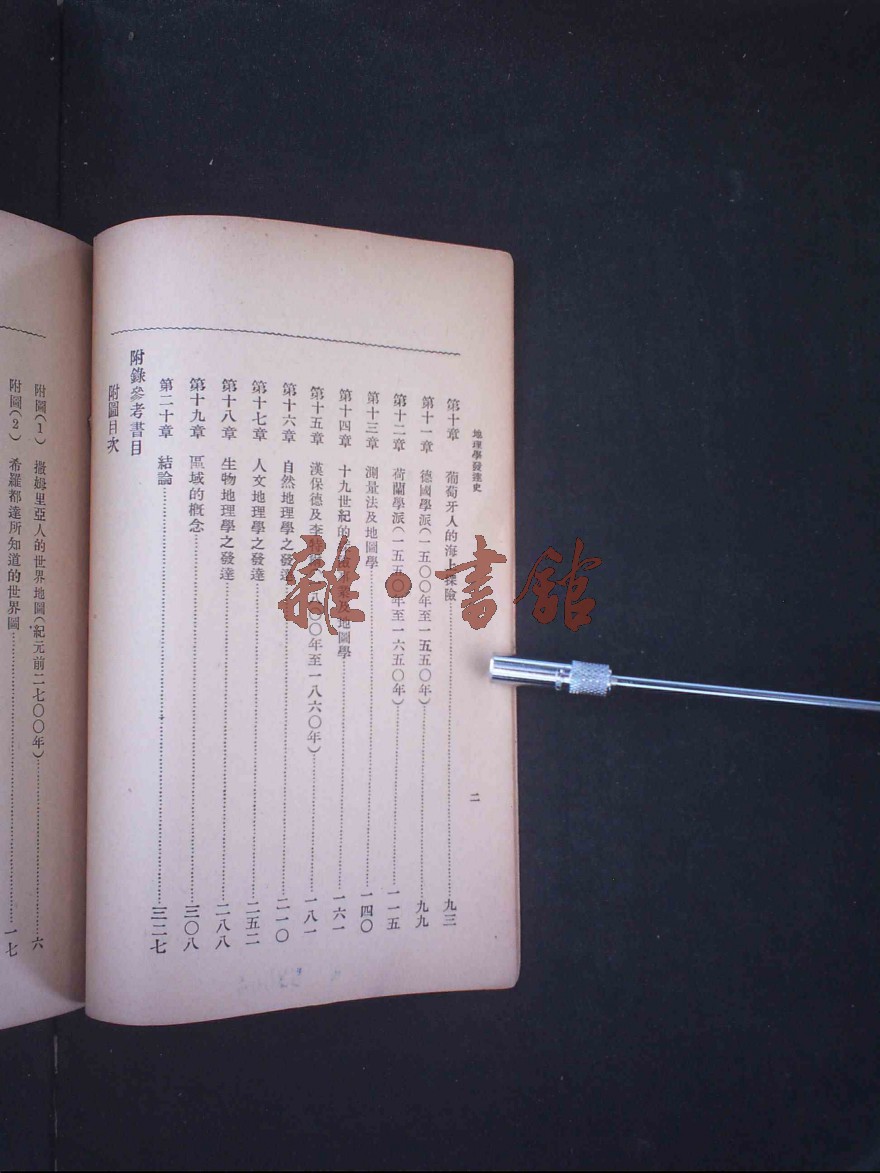 地理學發達史
二
第十章 葡萄牙人的海上探險…………九三
第十一章 德國學派(一五〇〇年至一五五〇年)…………九九
第十二章 荷蘭學派(一五五〇年至一六五〇年)…………一一五
第十三章 測量法及地圖學…………一四〇
第十四章 十九世紀的 及地圖學…………一六一
第十五章 漢保德及李特 八〇〇年至一八六〇年)…………一八一
第十六章 自然地理學之發達…………二一〇
第十七章 人文地理學之發達…………二五二
第十八章 生物地理學之發達…………二八八
第十九章 區域的概念…………三〇八
第二十章 結論…………三二七
附錄參考書目
附圖目次
附圖(1) 撒姆里亞人的世界地圖(紀元前二七〇〇年)…………六
附圖(2) 希羅都達所知道的世界圖…………一七
雜·書館